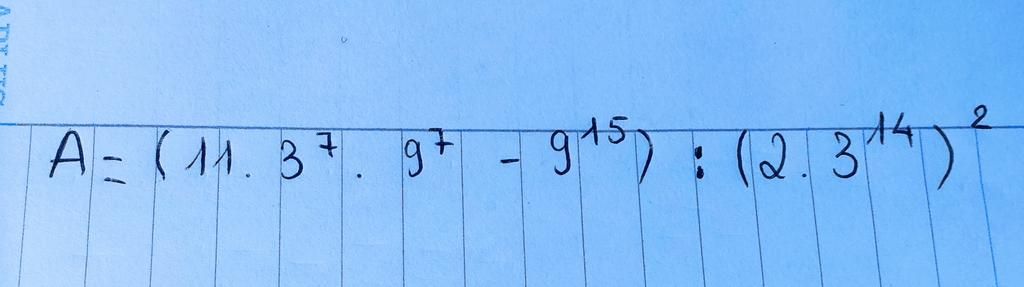 A = (11 . 3⁷ . 9⁷ - 9¹⁵) : (2 . 3¹⁴)²